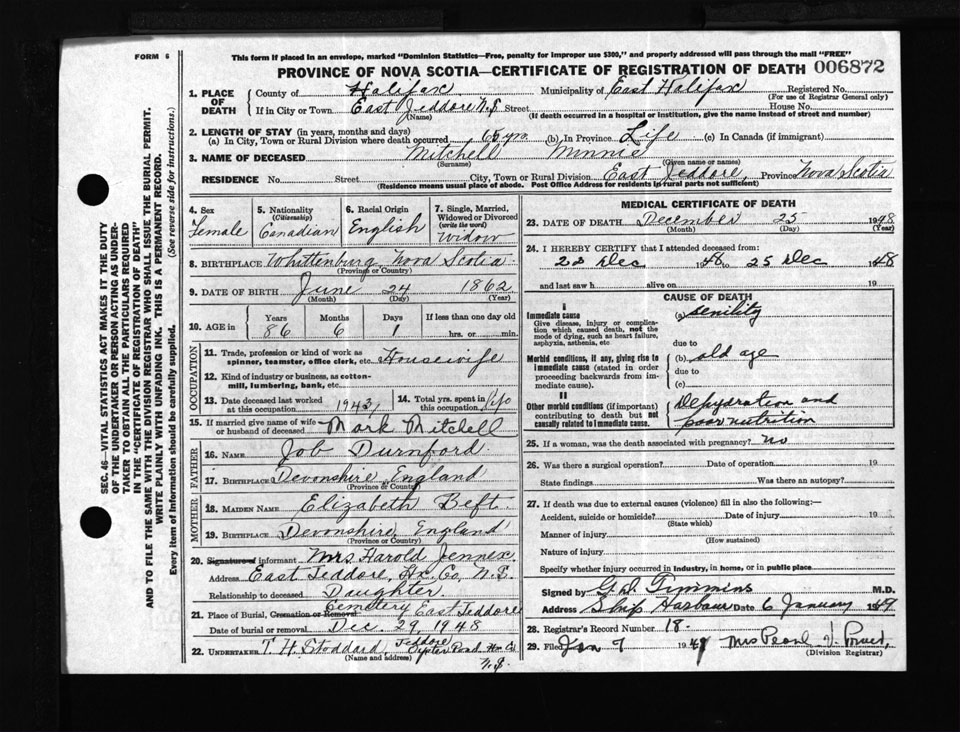 FORM 6
This form if placed in an envelope, marked "Dominion Statistics—Free, penalty for improper use $300," and properly addressed will pass through the mail "FREE"
PROVINCE OF NOVA SCOTIA—CERTIFICATE OF REGISTRATION OF DEATH 006872
1. PLACE OF DEATH County of Halifax Municipality of East Halifax Registered No.
(For use of Registrar General only)
If in City or Town East Jeddore N.S Street House No.
(Name) (If death occurred in a hospital or institution, give the name instead of street and number)
2. LENGTH OF STAY (in years, months and days)
(a) In City, Town or Rural Division where death occurred yrs (b) In Province Life (c) In Canada (if immigrant)
3. NAME OF DECEASED Mitchell Minnie
(Surname) (Given name or names)
RESIDENCE No. Street City, Town or Rural Division East Jeddore, Province Nova Scotia
(Residence means usual place of abode. Post Office Address for residents in rural parts not sufficient)
4. Sex Female
5. Nationality (Citizenship) Canadian
6. Racial Origin English
7. Single, Married, Widowed or Divorced (write the word) Widow
8. BIRTHPLACE Whittenburg Nova Scotia
(Province or Country)
9. DATE OF BIRTH June 24 1862
(Month) (Day) (Year)
10. AGE in Years 86 Months 6 Days 1 If less than one day old hrs. or min.
OCCUPATION
11. Trade, profession or kind of work as spinner, teamster, office clerk, etc. Housewife
12. Kind of industry or business, as cotton-mill, lumbering, bank, etc.
13. Date deceased last worked at this occupation 1943
14. Total yrs. spent in this occupation
15. If married give name of wife or husband of deceased Mark Mitchell
FATHER
16. NAME Job Durnford
17. BIRTHPLACE Devonshire England
(Province or Country)
MOTHER
18. MAIDEN NAME Elizabeth Beft
19. BIRTHPLACE Devonshire, England
(Province or Country)
20. Signature of informant Mrs Harold Jennex
Address East Jeddore, Hx. Co, N.S.
Relationship to deceased Daughter
21. Place of Burial, Cremation or Removal Cemetery East Jeddore
Date of burial or removal Dec. 29, 1948
22. UNDERTAKER T. H. Stoddard, Jeddore Oyster Pond Hx Co N.S.
(Name and address)
MEDICAL CERTIFICATE OF DEATH
23. DATE OF DEATH December 25 1948
(Month) (Day) (Year)
24. I HEREBY CERTIFY that I attended deceased from:
22 Dec 1948 to 25 Dec 1948
and last saw h alive on 19
CAUSE OF DEATH
I
Immediate cause
Give disease, injury or complication which caused death, not the mode of dying, such as heart failure, asphyxia, asthenia, etc
(a) senility
due to
Morbid conditions, if any, giving rise to immediate cause (stated in order proceeding backwards from immediate cause).
(b) old age
due to
(c)
II
Other morbid conditions (if important) contributing to death but not causally related to immediate cause.
Dehydration and
poor nutrition
25. If a woman, was the death associated with pregnancy? no
26. Was there a surgical operation? Date of operation 19
State findings Was there an autopsy?
27. If death was due to external causes (violence) fill in also the following:—
Accident, suicide or homicide? Date of injury 19
(State which)
Manner of injury
(How sustained)
Nature of injury
Specify whether injury occurred in industry, in home, or in public place
Signed by G.D. Timmins M.D.
Address Ship Harbour Date 6 January 1949
28. Registrar's Record Number 18.
29. Filed Jan 7 1949 Mrs Pearl V.
(Division Registrar)
SEC. 46—VITAL STATISTICS ACT MAKES IT THE DUTY
OF THE UNDERTAKER OR PERSON ACTING AS UNDER-
TAKER TO OBTAIN ALL THE PARTICULARS REQUIRED
IN THE "CERTIFICATE OF REGISTRATION OF DEATH"
AND TO FILE THE SAME WITH THE DIVISION REGISTRAR WHO SHALL ISSUE THE BURIAL PERMIT.
WRITE PLAINLY WITH UNFADING INK. THIS IS A PERMANENT RECORD.
Every item of Information should be carefully supplied. (See reverse side for instructions.)